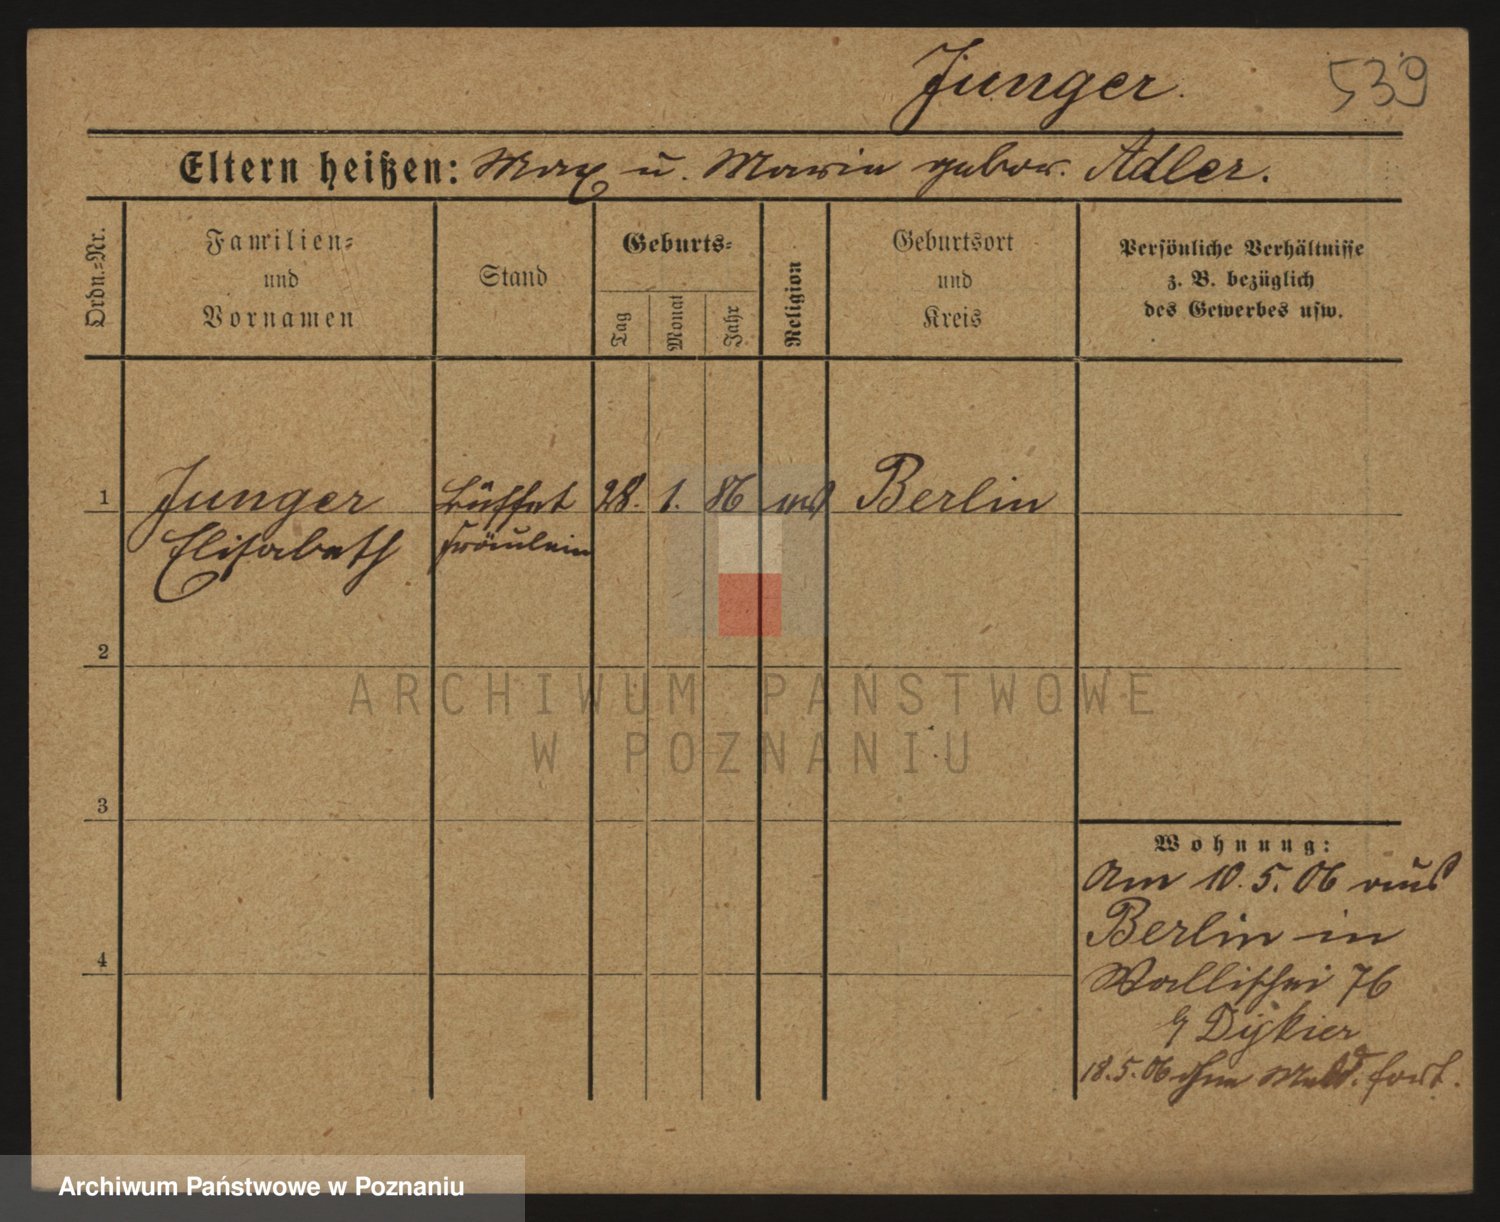 Junger.
539
Eltern heißen: Max u. Marie gebor. Adler.
Ordn.-Nr.
Familien- und Vornamen
Stand
Geburts-
Tag
Monat
Jahr
Religion
Geburtsort und Kreis
Persönliche Verhältnisse
z. B. bezüglich
des Gewerbes usw.
1 Junger Büffet 28. 1. 86 Berlin
Elisabeth fräulein
2
ARCHIWUM PAŃSTWOWE
W POZNANIU
3
Wohnung:
Am 10.5.06 aus
Berlin in
4
Wallischei 76
Dykier
18.5.06 ohne Meld. fort.
Archiwum Państwowe w Poznaniu